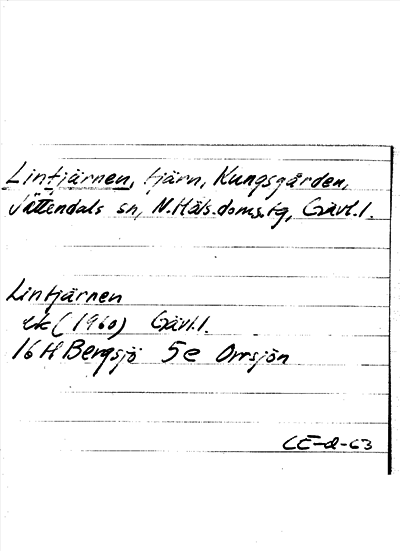 Lintjärnen, tjärn, Kungsgården,
Jättendals sn, N.Häls.doms.tg, Gävl.l.
Lintjärnen
ek (1960) Gävl.l.
16H Bergsjö 5e Orrsjön